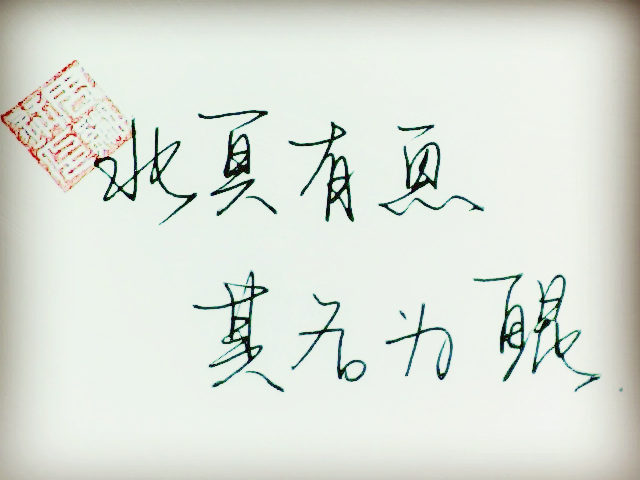 北冥有鱼
其名为鲲